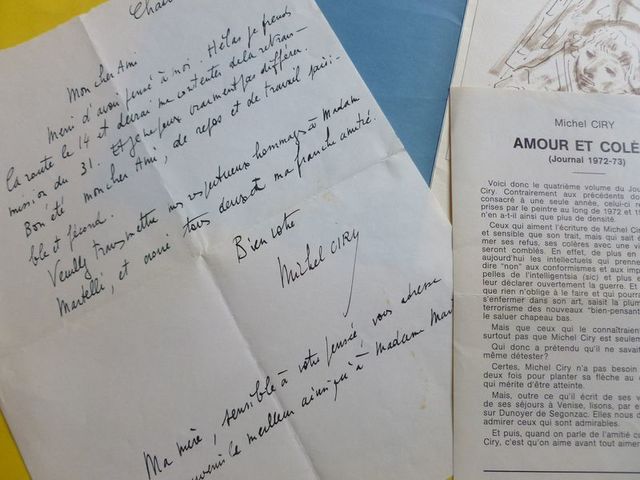 Mon cher Ami
Merci d'avoir pensé à moi. Hélas je prends
la route le 14 et devrai me contenter de la retrans-
mission du 31. Et je ne peux vraiment pas différer.
Bon été mon cher Ami, de repos et de travail paisi-
ble et fécond.
Veuillez transmettre mes respectueux hommages à Madame
Martelli, et croire tous deux à ma franche amitié.
Bien votre
Michel CIRY
Ma mère, sensible à votre pensée, vous adresse
le meilleur ainsi qu'à Madame Mar
Michel CIRY
AMOUR ET COLÈ
(Journal 1972-73)
Voici donc le quatrième volume du Jou
Ciry. Contrairement aux précédents do
consacré à une seule année, celui-ci re
prises par le peintre au long de 1972 et 1
n'en a-t-il ainsi que plus de densité.
Ceux qui aiment l'écriture de Michel Cir
et sensible que son trait, mais qui sait é
mer ses refus, ses colères avec une vi
seront comblés. En effet, de plus en
aujourd'hui les intellectuels qui prenne
dire "non" aux conformismes et aux imp
pelles de l'intelligentsia (sic) et plus e
leur déclarer ouvertement la guerre. Et
que rien n'oblige à le faire et qui pourr
s'enfermer dans son art, saisit la plum
terrorisme des nouveaux "bien-pensant
le saluer chapeau bas.
Mais que ceux qui le connaîtraien
surtout pas que Michel Ciry est seulem
Qui donc a prétendu qu'il ne savait
même détester?
Certes, Michel Ciry n'a pas besoin
deux fois pour planter sa flèche au c
qui mérite d'être atteinte.
Mais, outre ce qu'il écrit de ses v
de ses séjours à Venise, lisons, par e
sur Dunoyer de Segonzac. Elles nous d
admirer ceux qui sont admirables.
Et puis, quand on parle de l'amitié co
Ciry, c'est qu'on aime avant tout aimer